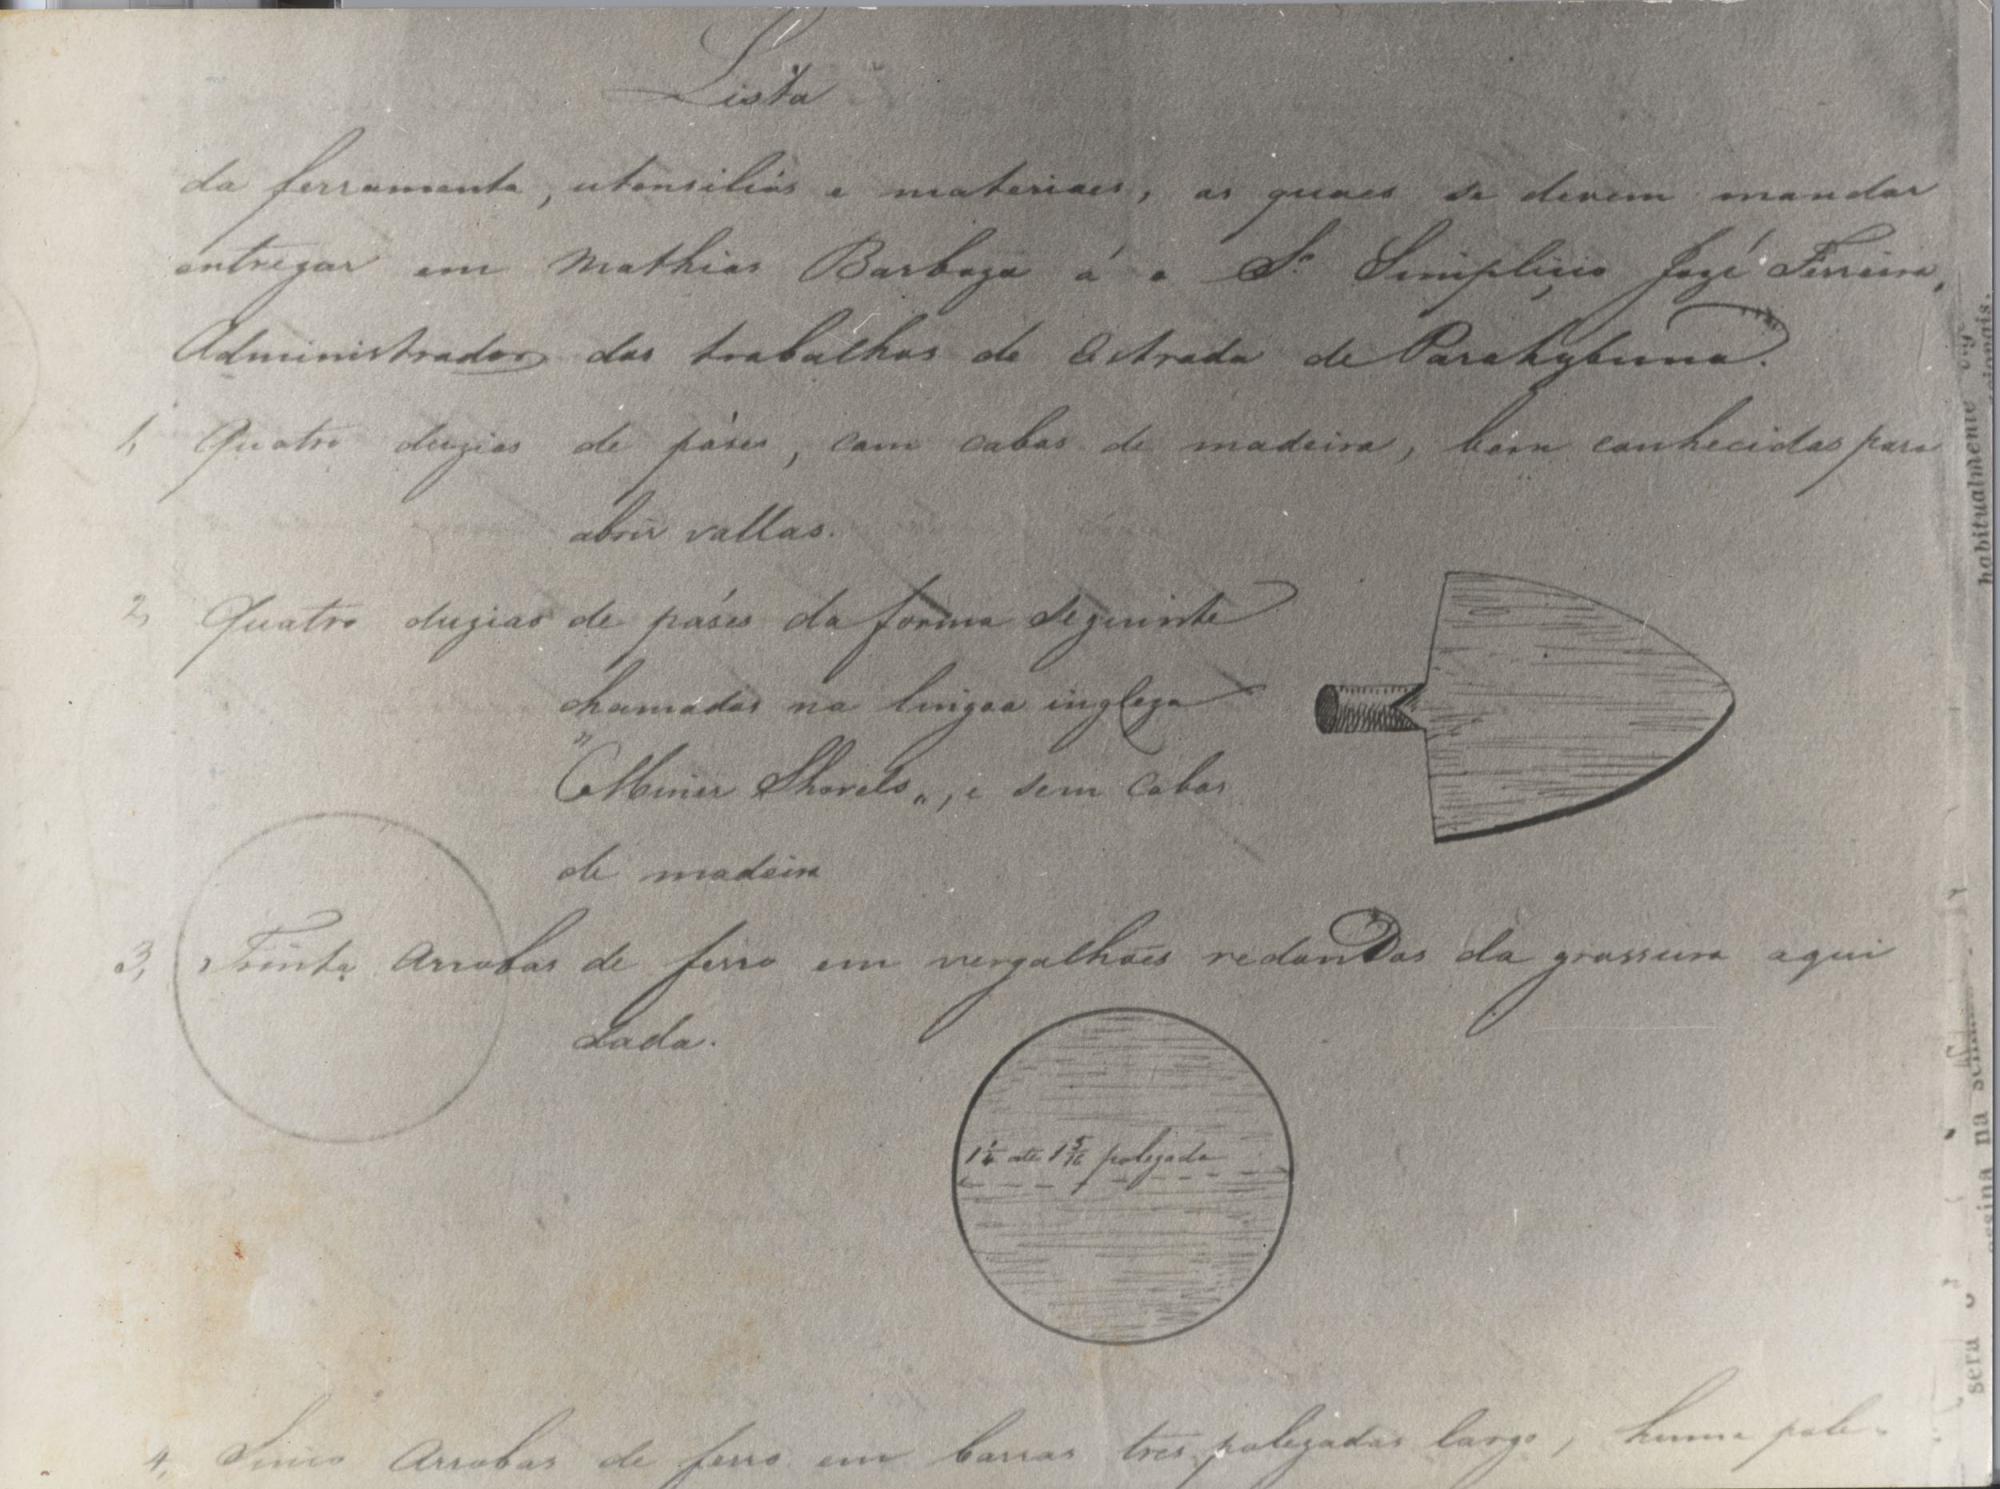 Lista
da ferramenta, utensiliós e materiaes, as quaes se devem mandar
entregar em Mathias Barboza á o Sr. Simpliçio Jozé Ferreira,
Administrador dos trabalhos de Estrada de Parahybuna.
1, Quatro duzias de páses, com cabos de madeira, bem conhecidas para
abrir vallas.
2, Quatro duzias de páses da forma seguinte
chamadas na lingoa ingleza
"Miner Shovels", e sem cabos
de madeira
3, Trinta Arrobas de ferro em vergalhoẽs redondos da grosseira aqui
dada.
1 1/4 até 1 5/16 polegada
4, Sinco Arrobas de ferro em barras tres polegadas largo, huma pole-
habitualmente
assina na
sera o